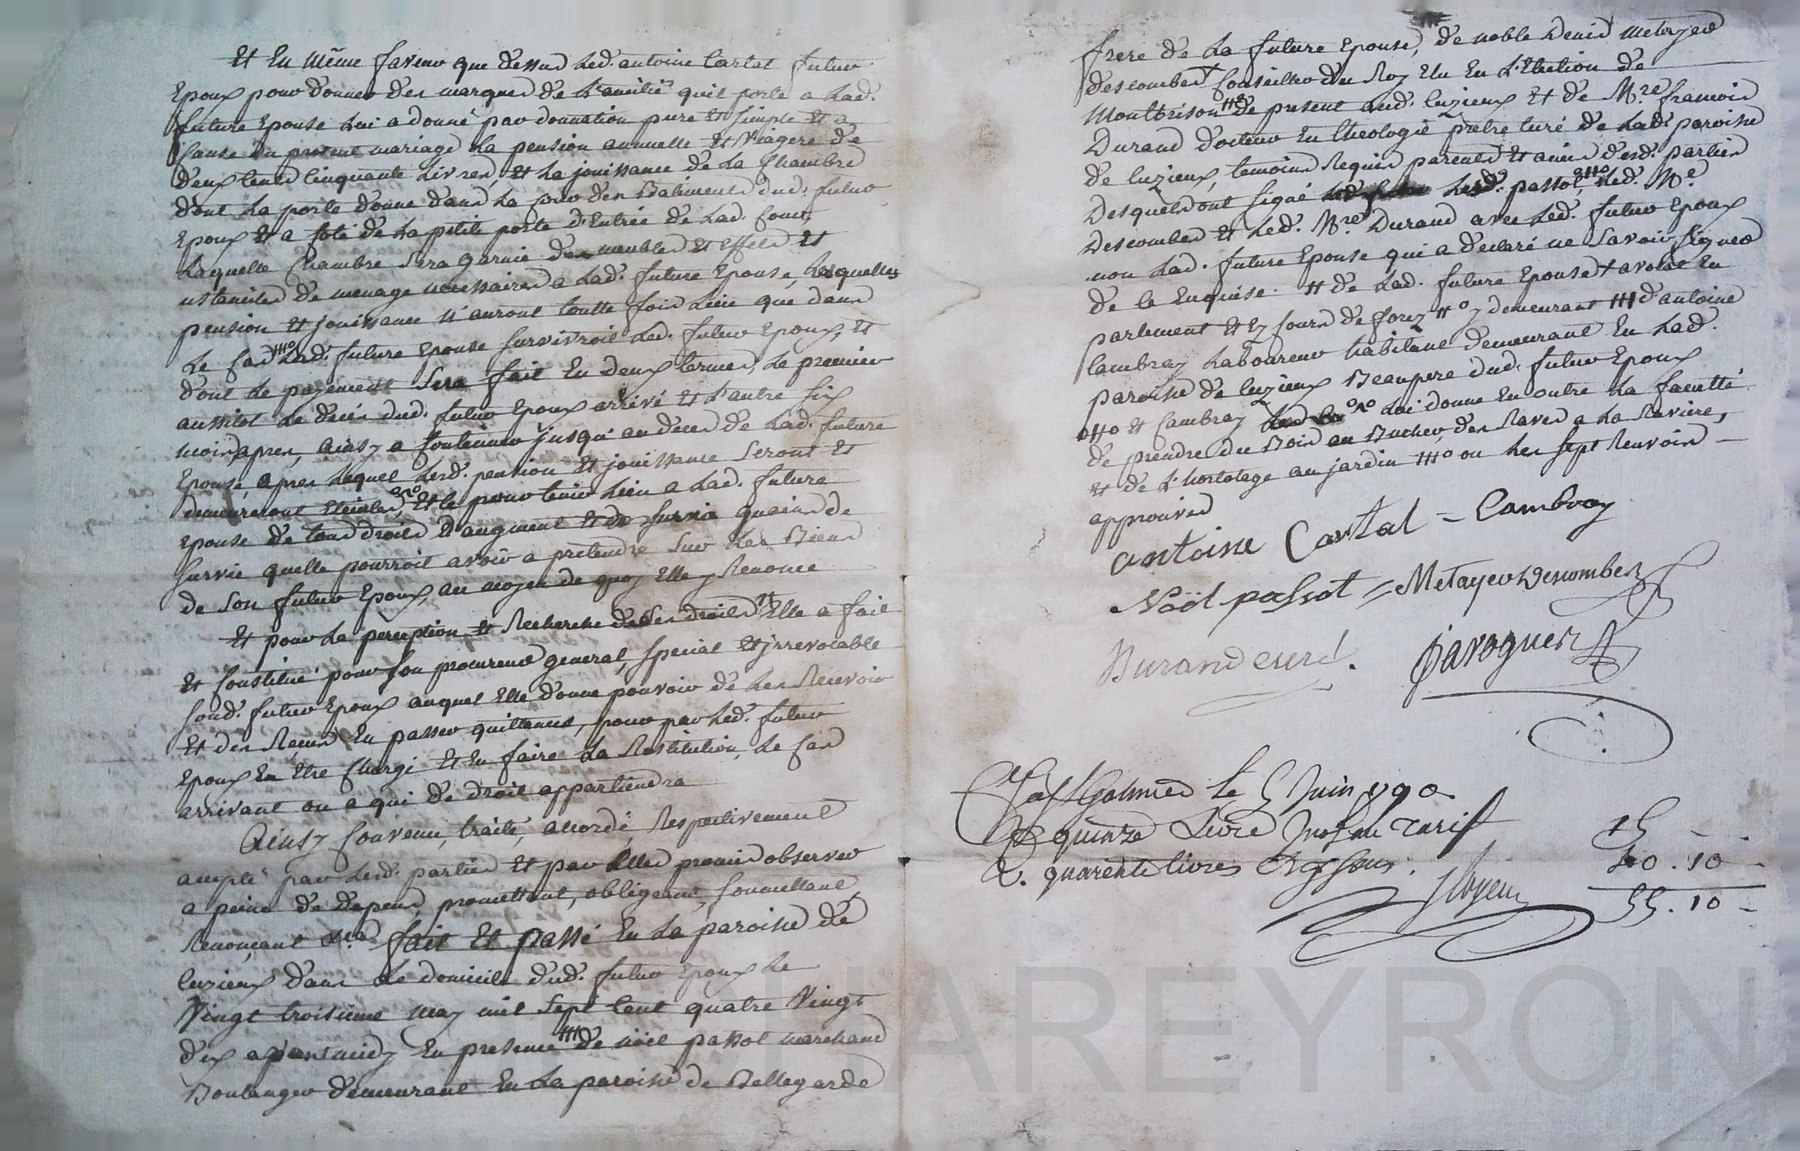 Et En même faveur que dessus Led. antoine Cartal futur
Epoux pour donner des marques de L'amitié qu'il porte a Lad.
future Epouse Lui a donné par donnation pure et simple et a
Cause du present mariage La pension annuelle et Viagere de
deux cents Cinquante Livres, et La jouissance de La Chambre
dont La porte donne dans La cour des Batiments dud. futur
Epoux et a Coté de La petite porte d'Entrée de Lad. Cour,
Laquelle Chambre sera garnie des meubles et Effets et
ustanciles de menage necessaires a Lad. future Epouse, Lesquelles
pension et jouissance n'auront toutte fois Lieu que dans
Le Cas ou Lad. future Epouse survivroit Led. futur Epoux, Et
dont Le payement sera fait En deux termes, Le premier
aussitot Le decès dud. futur Epoux arrivé et L'autre six
mois apres, ainsy a Continuer jusqu'au deces de Lad. future
Epouse, apres Lequel Lesd. pension et jouissance seront et
demeureront Eteintes, Et ce pour tenir Lieu a Lad. future
Epouse de tous droits d'augment et de survie gains de
survie quelle pourroit avoir a pretendre sur Les Biens
de son futur Epoux, au moyen de quoy Elle y Renonce
Et pour La perception et Recherche de ses droits Elle a fait
et Constitué pour son procureur general, special et irrevocable
sond. futur Epoux auquel Elle donne pouvoir de Les Recevoir
et des Recus En passer quittances, pour par Led. futur
Epoux En Etre Chargé et En faire La Restitution, Le Cas
arrivant ou a qui de droit appartiendra
Ainsy Convenu, traité, accordé Respectivement
accepté par Lesd. parties et par Elles promis observer
a peine de depens, promettant, obligeant, soumettant,
Renonçant &ca fait Et passé En La paroisse de
Cuzieux dans Le domicile dud. futur Epoux Le
Vingt troisieme may mil sept Cent quatre Vingt
dix avant midy En presence de noël passot marchand
Boulanger demeurant En La paroisse de Bellegarde
frere de La future Epouse, de noble Denis metayer
descombes Conseiller du Roy Elu En L'Election de
Montbrison de present aud. Cuzieux et de Mre francois
Durand docteur En theologie pretre Curé de Lad. paroisse
de Cuzieux, temoins Requis parents et amis desd. parties
Desquels ont signé Lesd. passot, Led. Mr
Descombes et Led. Mre Durand avec Led. futur Epoux
non Lad. future Epouse qui a declaré ne savoir signer
de ce Enquise. # de Lad. future Epouse + avocat En
parlement et Es Cours de forez # y demeurant # d'antoine
Cambray Laboureur habitant demeurant En Lad.
paroisse de Cuzieux Beaupere dud. futur Epoux
et Cambray Lui donne En outre La faculté
de prendre du Bois au Bucher, des Raves a La Raviere,
et de L'hortolage au jardin ou Les sept Renvois
approuvés
antoine Cartal = Cambray
Noël passot = Metayer Descombes
Durand curé. Javogues
a St Galmier le 5 Juin 1790
R quinze Livres
R. quarente livres dix sous.
15
40. 10
55. 10
HAREYRON